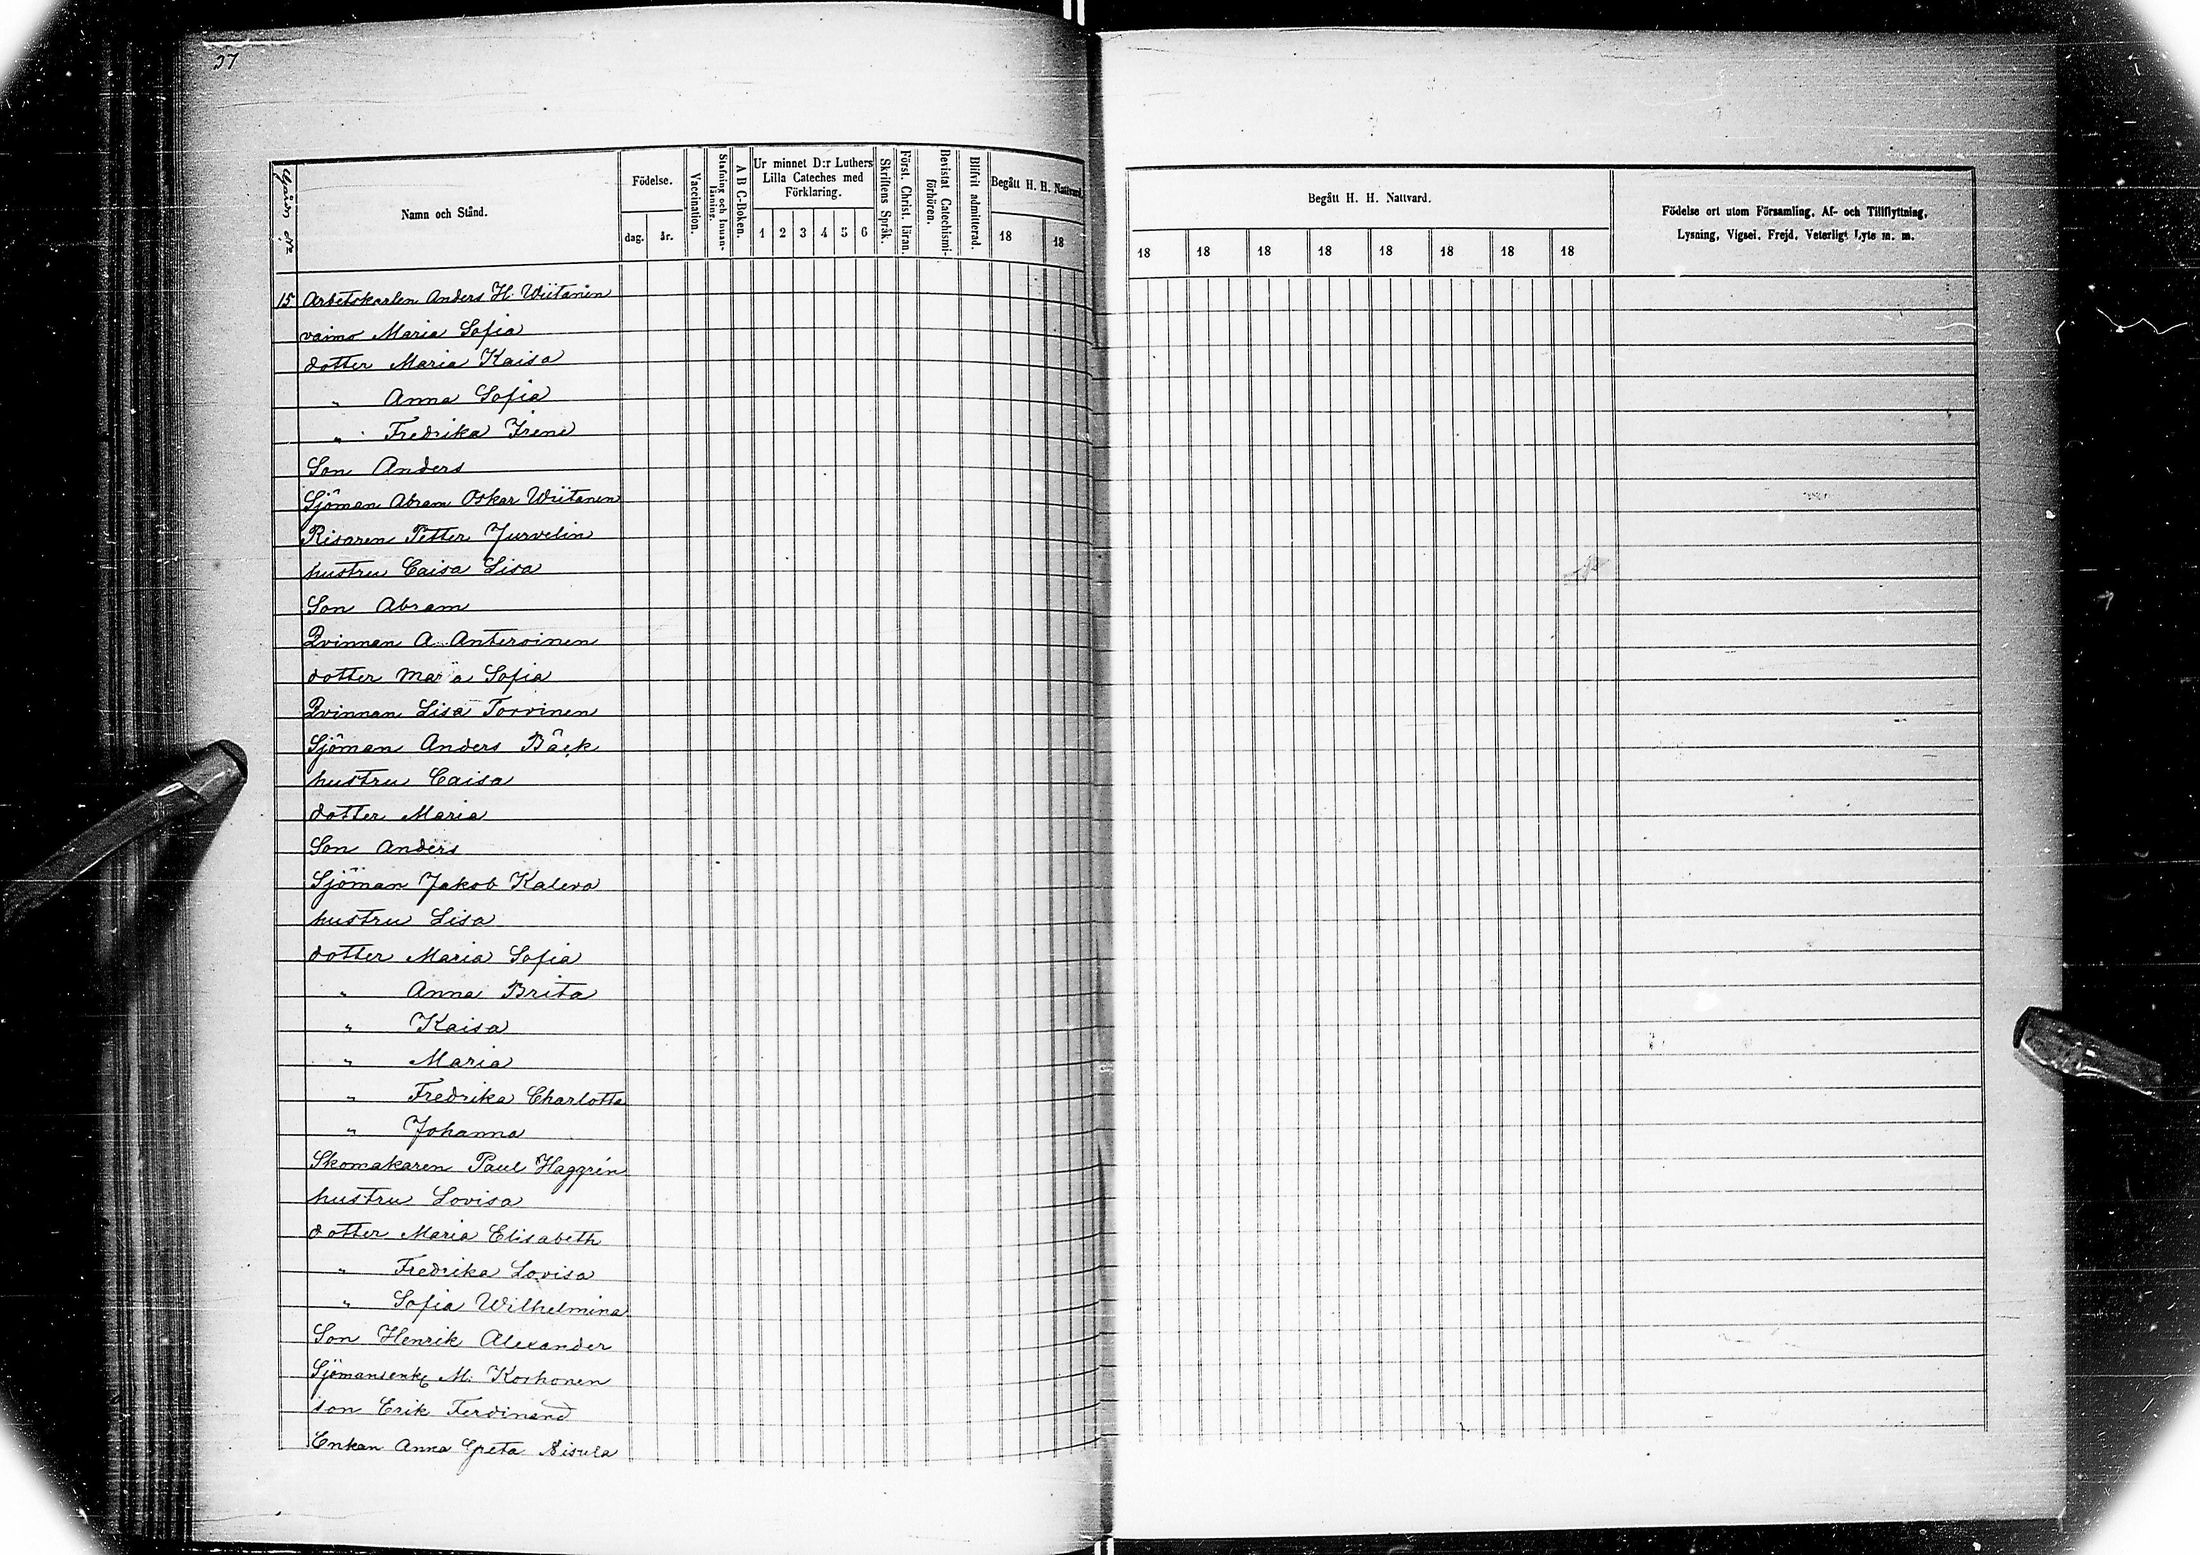 37
Gårds No.
Namn och Stånd.
Födelse.
dag. år.
Vaccination.
Stafning och Innan-läsning.
A B C-Boken.
Ur minnet D:r Luthers
Lilla Cateches med
Förklaring.
1 2 3 4 5 6
Skriftens Språk.
Först. Christ. läran.
Bevistat Catechismi-förhören.
Blifvit admitterad.
Begått H. H. Nattvard.
18 18
Begått H. H. Nattvard.
18 18 18 18 18 18 18 18
Födelse ort utom Församling, Af- och Tillflyttning,
Lysning, Vigsel, Frejd, Veterligt Lyte m. m.
15 Arbetskarlen Anders H. Wiitanen
vaimo Maria Sofia
dotter Maria Kaisa
" Anna Sofia
" Fredrika Irene
Son Anders
Sjöman Abram Oskar Wiitanen
Petter Jurvelin
hustru Caisa Lisa
Son Abram
Qvinnan A. Anteroinen
dotter Maria Sofia
Qvinnan Lisa Torvinen
Sjöman Anders Bäck
hustru Caisa
dotter Maria
Son Anders
Sjöman Jakob Kaleva
hustru Lisa
dotter Maria Sofia
" Anna Brita
" Kaisa
" Maria
" Fredrika Charlotta
" Johanna
Skomakaren Paul Haggrén
hustru Lovisa
dotter Maria Elisabeth
" Fredrika Lovisa
" Sofia Wilhelmina
Son Henrik Alexander
Sjömansenk. M. Korhonen
son Erik Ferdinand
Enkan Anna Greta Sisula